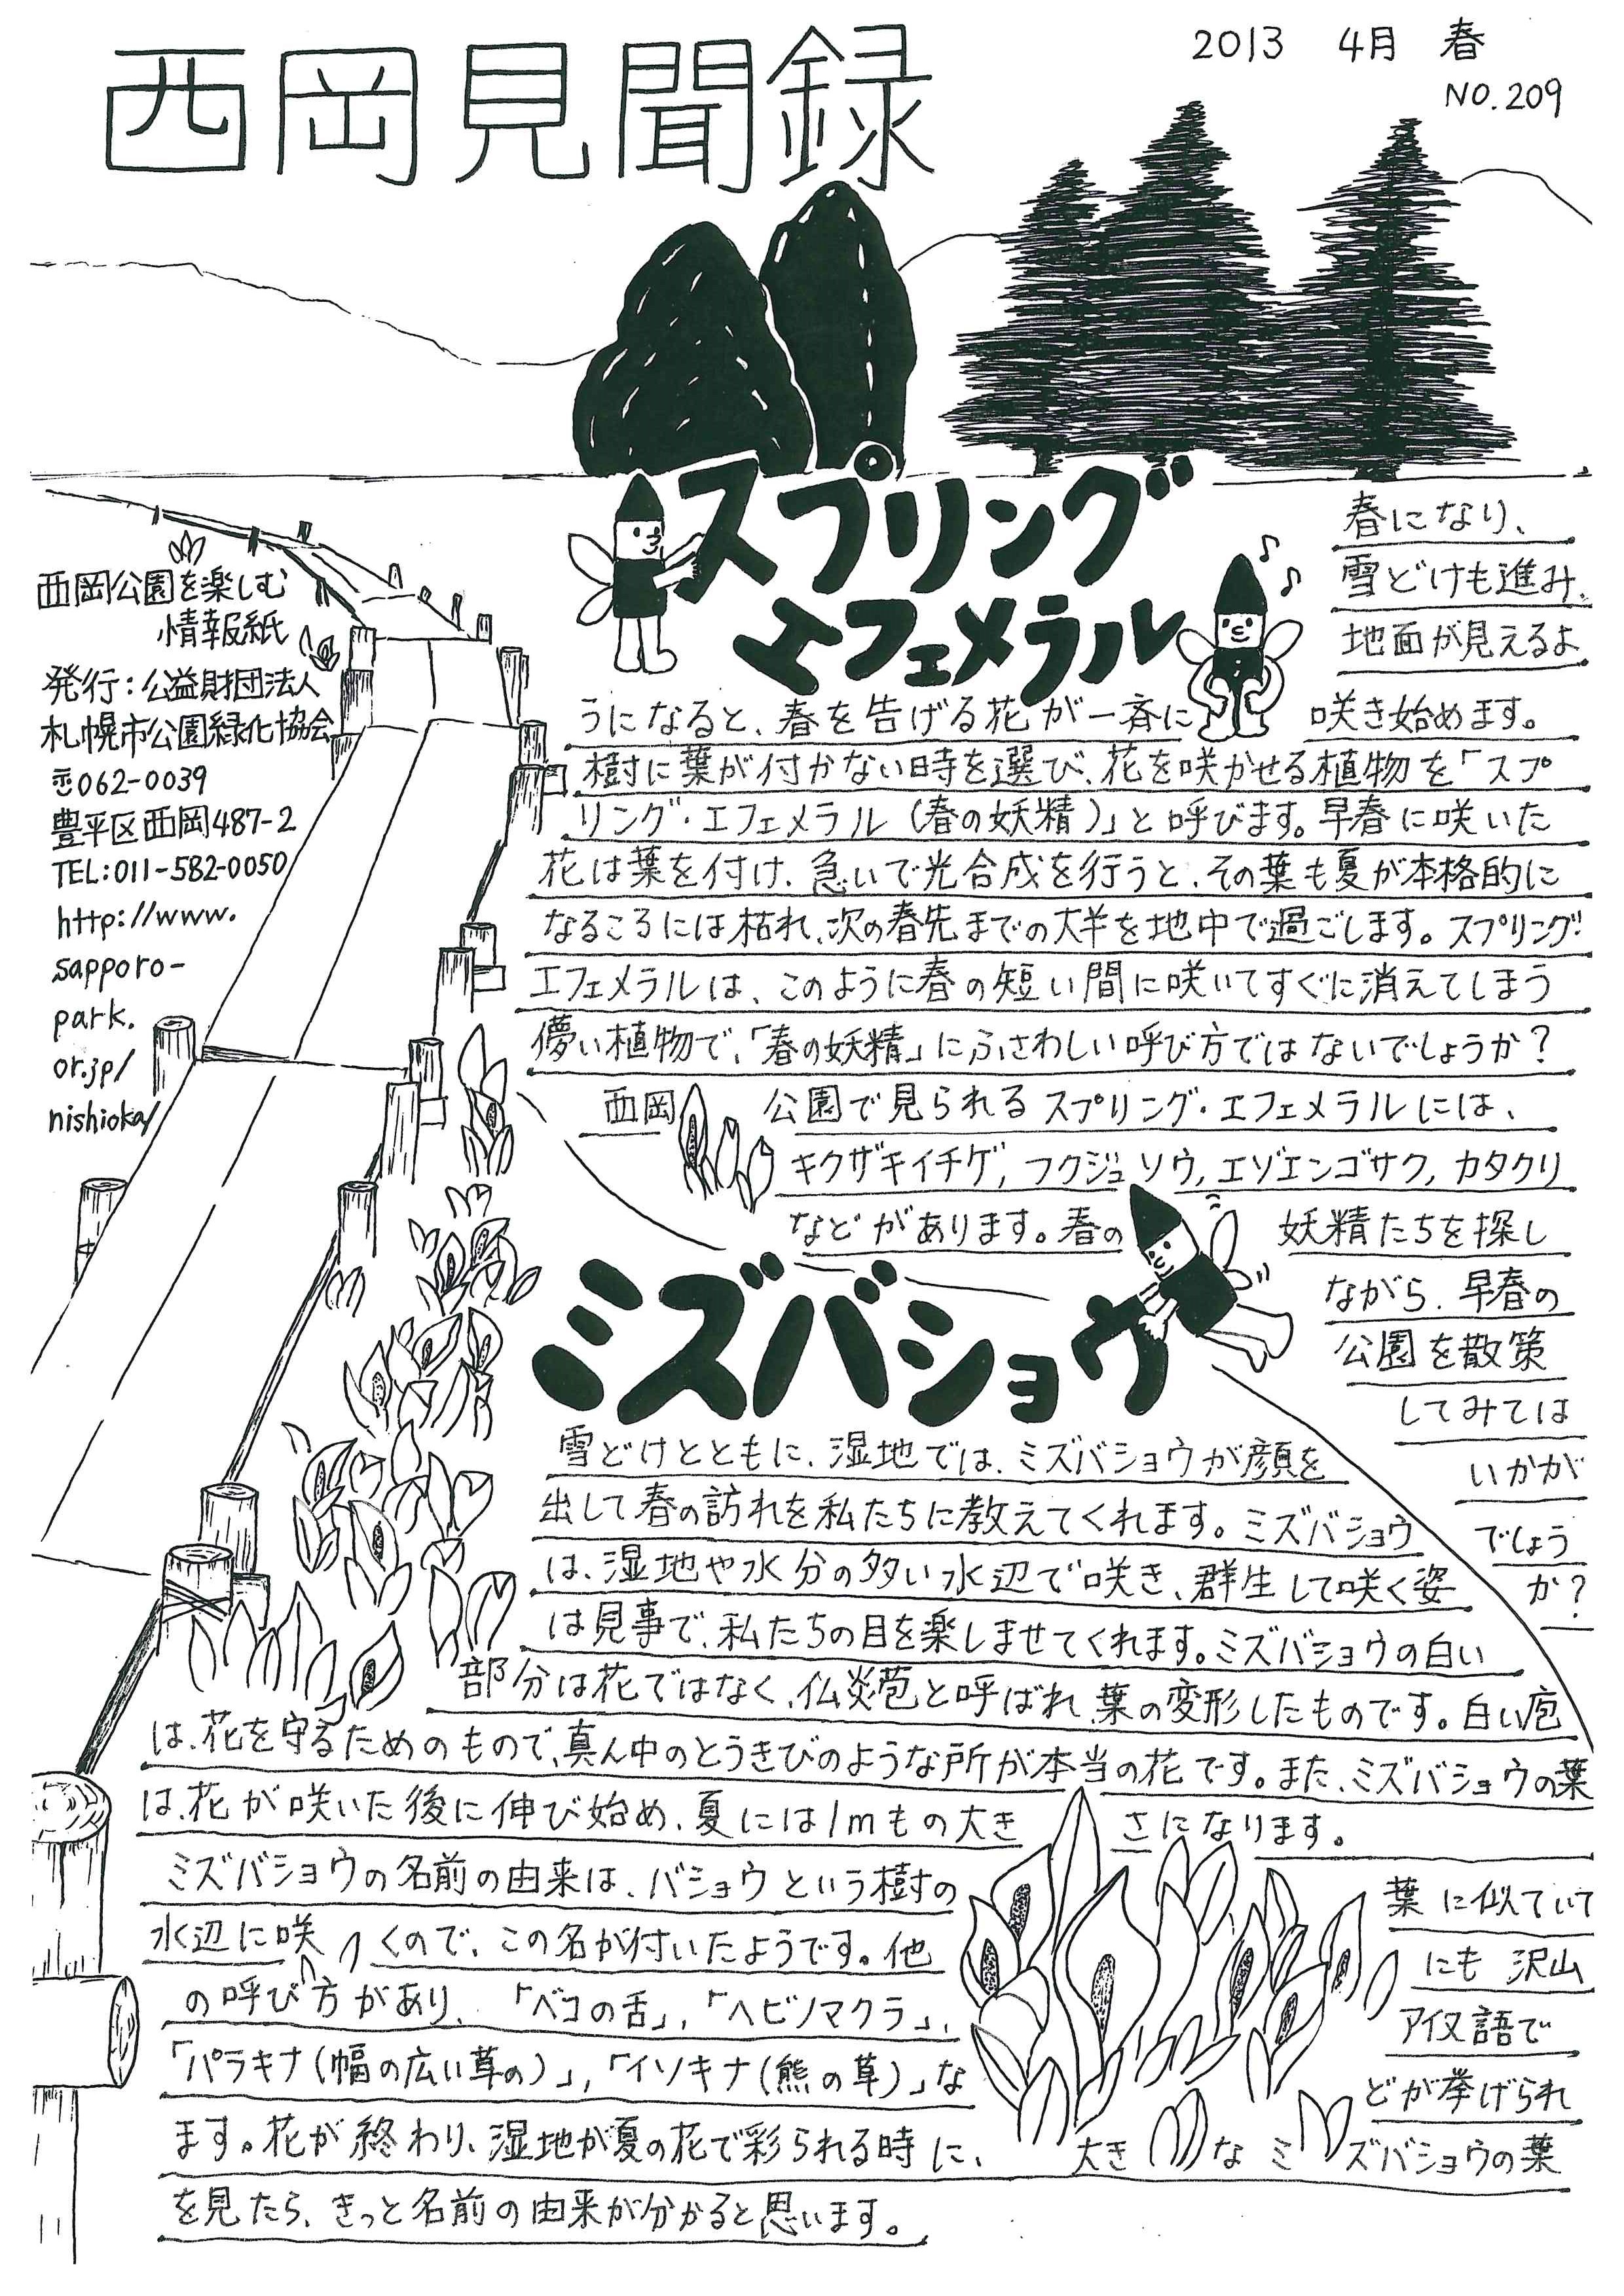 西岡見聞録
2013 4月 春
NO.209
西岡公園を楽しむ
情報紙
発行:公益財団法人
札幌市公園緑化協会
〒062-0039
豊平区西岡487-2
TEL:011-582-0050
http://www.
sapporo-
park.
or.jp/
nishioka/
スプリング
エフェメラル
春になり、
雪どけも進み、
地面が見えるよ
うになると、春を告げる花が一斉に咲き始めます。
樹に葉が付かない時を選び、花を咲かせる植物を「スプ
リング・エフェメラル(春の妖精)」と呼びます。早春に咲いた
花は葉を付け、急いで光合成を行うと、その葉も夏が本格的に
なるころには枯れ、次の春先までの大半を地中で過ごします。スプリング・
エフェメラルは、このように春の短い間に咲いてすぐに消えてしまう
儚い植物で、「春の妖精」にふさわしい呼び方ではないでしょうか?
西岡公園で見られるスプリング・エフェメラルには、
キクザキイチゲ,フクジュソウ,エゾエンゴサク,カタクリ
などがあります。春の妖精たちを探し
ながら、早春の
公園を散策
してみては
いかが
でしょう
か?
ミズバショウ
雪どけとともに、湿地では、ミズバショウが顔を
出して春の訪れを私たちに教えてくれます。ミズバショウ
は、湿地や水分の多い水辺で咲き、群生して咲く姿
は見事で、私たちの目を楽しませてくれます。ミズバショウの白い
部分は花ではなく、仏炎苞と呼ばれ、葉の変形したものです。白い苞
は、花を守るためのもので、真ん中のとうきびのような所が本当の花です。また、ミズバショウの葉
は、花が咲いた後に伸び始め、夏には1mもの大きさになります。
ミズバショウの名前の由来は、バショウという樹の葉に似ていて
水辺に咲くので、この名が付いたようです。他にも沢山
の呼び方があり、「ベコの舌」,「ヘビノマクラ」,アイヌ語で
「パラキナ(幅の広い草の)」,「イソキナ(熊の草)」などが挙げられ
ます。花が終わり、湿地が夏の花で彩られる時に、大きなミズバショウの葉
を見たら、きっと名前の由来が分かると思います。